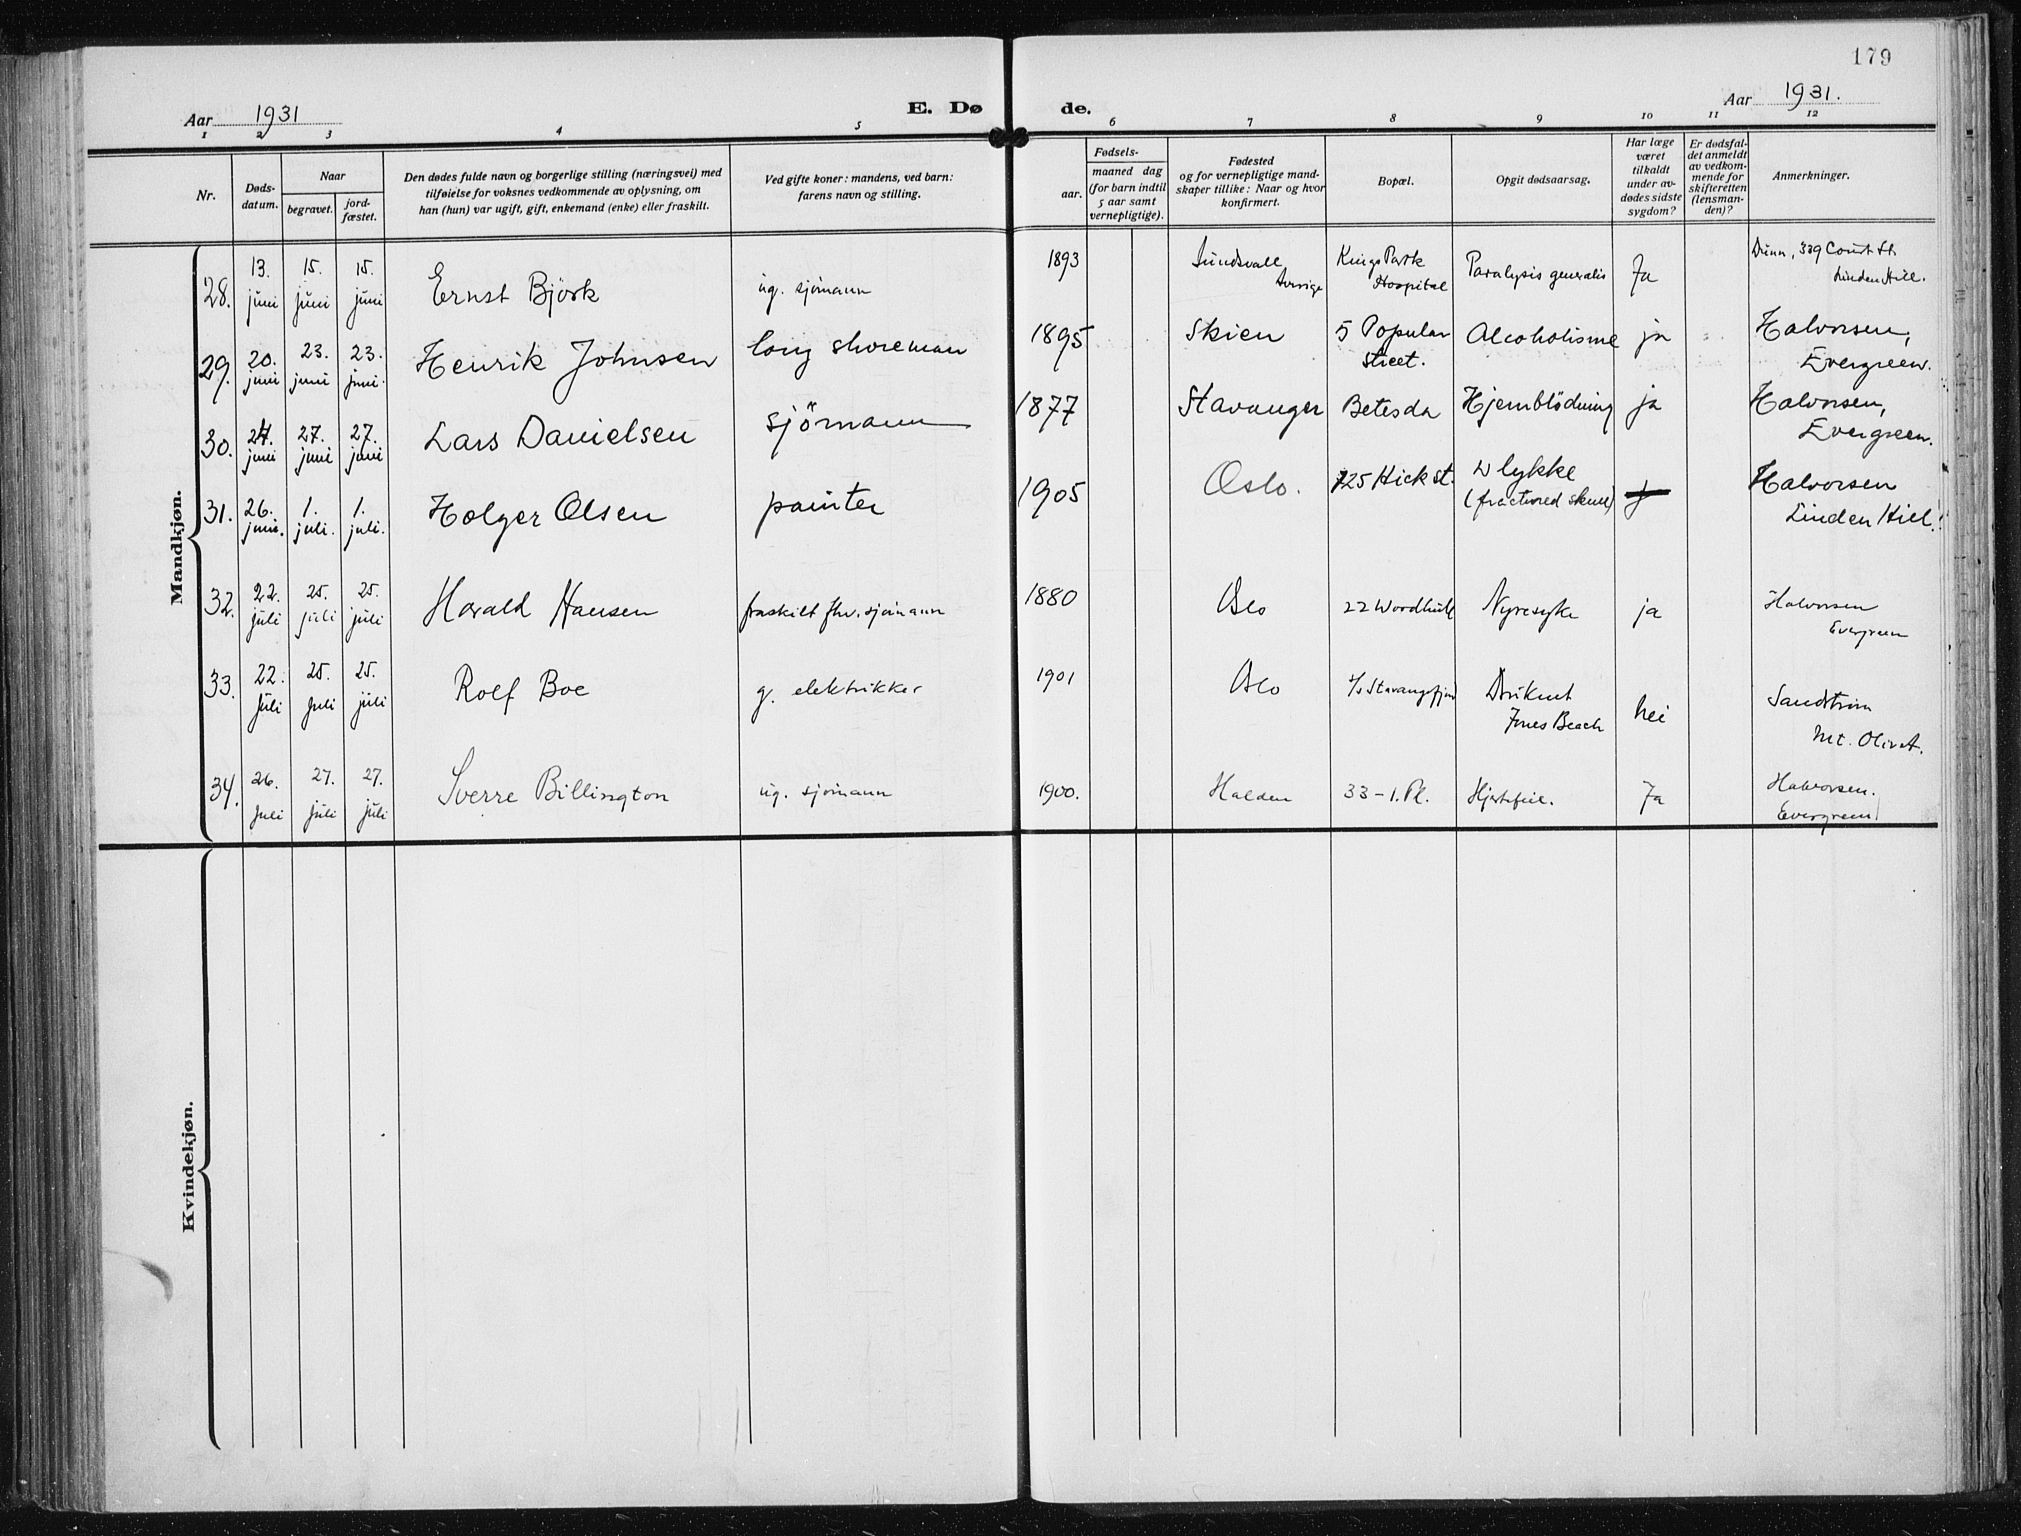 179
Aar 1931
E. Dø de.
Aar 1931.
1 2 3 4 5 6 7 8 9 10 11 12
Nr.
Døds-
datum.
Naar
begravet.
jord-
fæstet.
Den dødes fulde navn og borgerlige stilling (næringsvei) med
tilføielse for voksnes vedkommende av oplysning, om
han (hun) var ugift, gift, enkemand (enke) eller fraskilt.
Ved gifte koner: mandens, ved barn:
farens navn og stilling.
Fødsels-
aar.
maaned dag
(for barn indtil
5 aar samt
vernepligtige).
Fødested
og for vernepligtige mand-
skaper tillike: Naar og hvor
konfirmert.
Bopæl.
Opgit dødsaarsag.
Har læge
været
tilkaldt
under av-
dødes sidste
sygdom?
Er dødsfal-
det anmeldt
av vedkom-
mende for
skifteretten
(lensman-
den)?
Anmerkninger.
Mandkjøn.
28. 13. juni 15. juni 15. juni Ernst Björk ug. sjömann 1893 Sundsvall Sverige Kings Park Hospital Paralysis generalis Ja Dunn, 339 Court St. Linden Hill.
29. 20. juni 23. juni 23. juni. Henrik Johnsen long shoreman 1895 Skien 5 Popular Street. Alcoholisme ja Halvorsen, Evergreen.
30. 24. juni 27. juni 27. juni Lars Danielsen sjömann 1877 Stavanger Betesda Hjernblödning ja Halvorsen, Evergreen.
31. 26. juni. 1. juli. 1. juli. Holger Olsen painter 1905 Oslo. 725 Hick st. Ulykke (fractured skull) Halvorsen Linden Hill.
32. 22. juli 25. juli 25. juli Harald Hansen fraskilt fhv. sjömann 1880 Oslo 22 Nyresyke ja Halvorsen Evergreen
33. 22. juli 25. juli 25. juli Rolf Boe g. elektrikker 1901 Oslo Stavangfjord Druknet Jones Beach nei Sandström Mt. Olivet.
34. 26. juli 27. juli 27. juli Sverre Billington ug. sjömann 1900. Halden 33 - 1. Pl. Hjertefeil. Ja Halvorsen. Evergreen
Kvindekjøn.